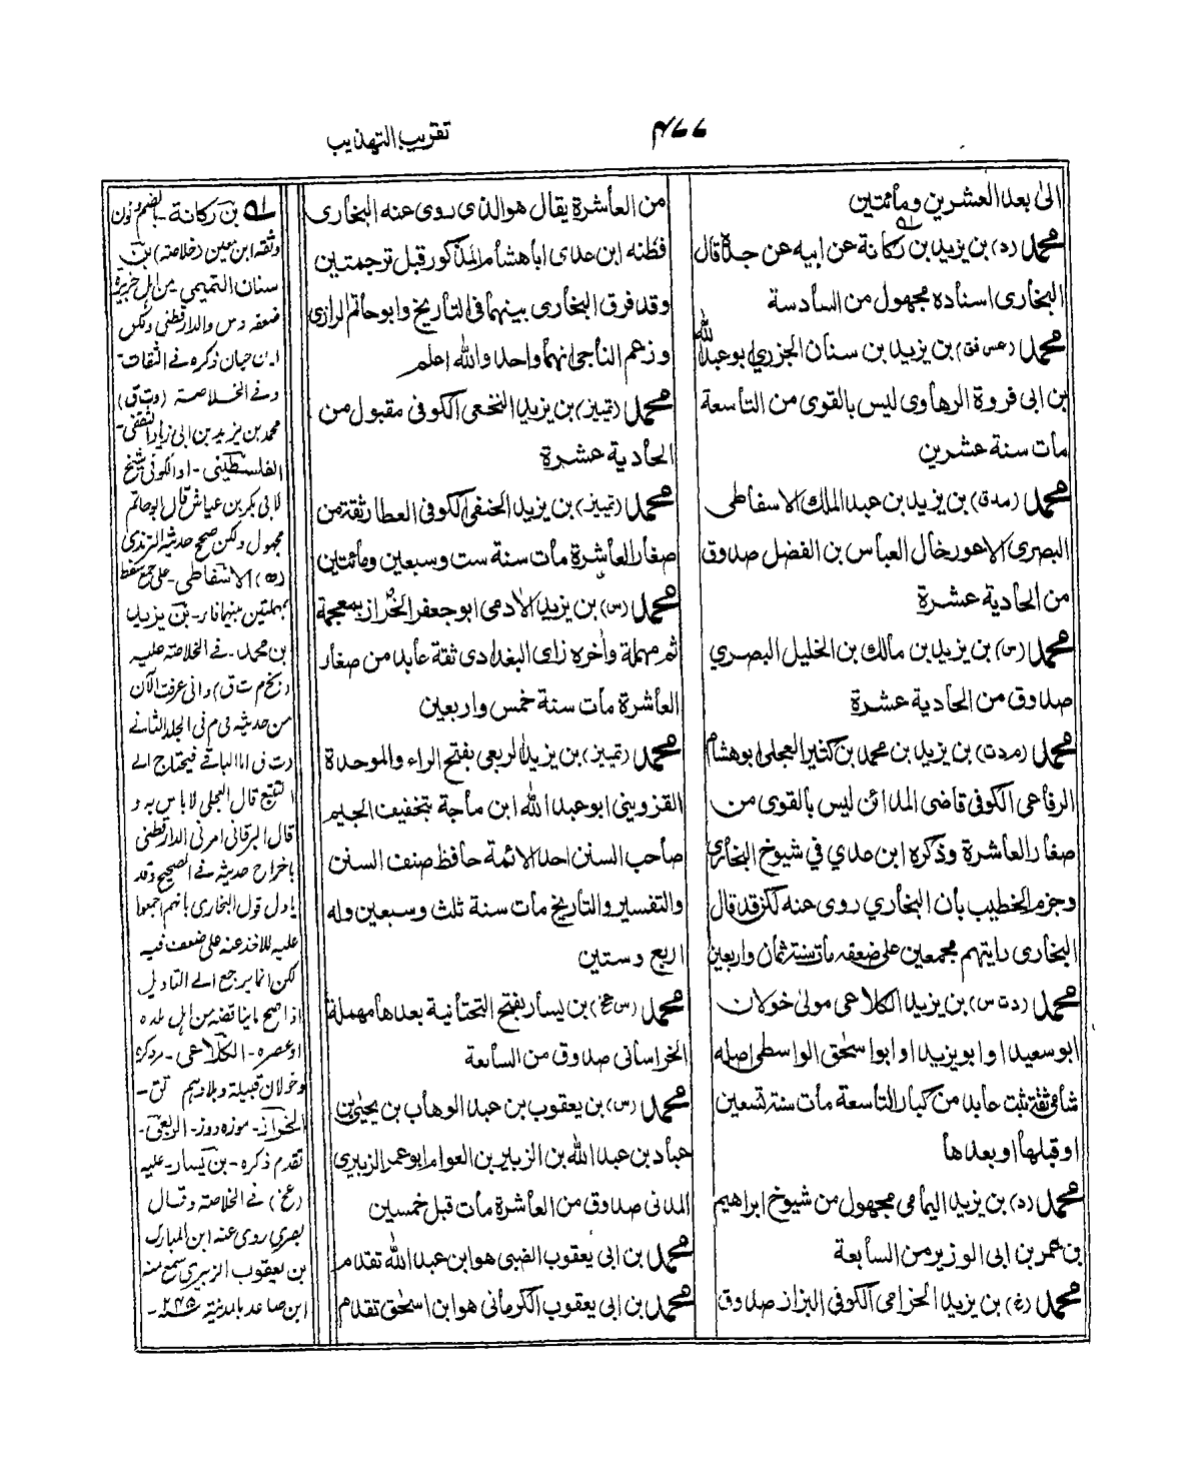 تقريب التهذيب
٤٧٧
الى بعد العشرين ومأتين
محمد (د) بن يزيد بن ركانة عن ابيه عن جده قال
البخارى اسناده مجهول من السادسة
محمد (عس فق) بن يزيد بن سنان الجزري ابو عبد الله
بن ابى فروة الرهاوى ليس بالقوى من التاسعة
مات سنة عشرين
محمد (مد ق) بن يزيد بن عبد الملك الاسفاطى
البصرى الاعور خال العباس بن الفضل صدوق
من الحادية عشرة
محمد (س) بن يزيد بن مالك بن الخليل البصري
صدوق من الحادية عشرة
محمد (م د ت) بن يزيد بن محمد بن كثير العجلى ابو هشام
الرفاعى الكوفى قاضى المدائن ليس بالقوى من
صغار العاشرة وذكره ابن عدي في شيوخ البخارى
وجزم الخطيب بأن البخاري روى عنه لكن قد قال
البخارى رايتهم مجمعين على ضعفه مات سنة ثمان واربعين
محمد (د ت س) بن يزيد الكلاعى مولى خولان
ابو سعيد او ابو يزيد او ابو اسحق الواسطى اصله
شامى ثقة ثبت عابد من كبار التاسعة مات سنة تسعين
او قبلها او بعدها
محمد (د) بن يزيد اليمامى مجهول من شيوخ ابراهيم
بن عمر بن ابى الوزير من السابعة
محمد (خ) بن يزيد الحزامى الكوفى البزاز صدوق
من العاشرة يقال هو الذى روى عنه البخارى
فظنه ابن عدى ابا هشام المذكور قبل ترجمتين
وقد فرق البخارى بينهما فى التأريخ وابو حاتم الرازى
وزعم الناجى انهما واحد والله اعلم
محمد (تمييز) بن يزيد النخعى الكوفى مقبول من
الحادية عشرة
محمد (تمييز) بن يزيد الحنفى الكوفى العطار ثقة من
صغار العاشرة مات سنة ست وسبعين ومأتين
محمد (س) بن يزيد الادمى ابو جعفر الخراز بمعجمة
ثم مهملة وأخره زاى البغدادى ثقة عابد من صغار
العاشرة مات سنة خمس واربعين
محمد (تمييز) بن يزيد الربعى بفتح الراء والموحدة
القزوينى ابو عبد الله ابن ماجة بتخفيف الجيم
صاحب السنن احد الائمة حافظ صنف السنن
والتفسير والتأريخ مات سنة ثلث وسبعين وله
اربع وستين
محمد (س عخ) بن يسار بفتح التحتانية بعدها مهملة
الخراسانى صدوق من السابعة
محمد (س) بن يعقوب بن عبد الوهاب بن يحيى بن
عباد بن عبد الله بن الزبير بن العوام ابو عمر الزبيرى
المدنى صدوق من العاشرة مات قبل خمسين
محمد بن ابى يعقوب الضبى هو ابن عبد الله تقدم
محمد بن ابى يعقوب الكرمانى هو ابن اسحق تقدم
بن ركانة - بضم ونون
وثقه ابن معين (خلاصة) بن
سنان التميمى من اهل جزيرة
ضعفه د س والدارقطنى ولكن
ابن حبان ذكره فى الثقات
وفى الخلاصة (د ت ق)
محمد بن يزيد بن ابى زياد الثقفى -
الفلسطينى - او الكوفى شيخ
لابى بكر بن عياش قال ابو حاتم
مجهول ولكن صحح حديثه الترمذى
الاسفاطى - على جمع سفط
بمهملتين بينهما فاء - بن يزيد
بن محمد - فى الخلاصة عليه
(بخ م ت ق) وانى عرفت الآن
من حديثه فى م فى الجلد الثانى
د ت ق اما الباقى فيحتاج الى
التتبع قال العجلى لا باس به و
قال البرقانى امرنى الدارقطنى
باخراج حديثه فى الصحيح وقد
ياول قول البخارى بانهم اجمعوا
عليه للاخذ عنه على ضعف فيه
لكن انما يرجع الى التاويل
اذا صح ما يناقضه من اهل بلده
او عصره - الكلاعى - مر ذكره
وخولان قبيلة وبلادهم تق -
الخراز - موزه دوز - الربعى -
تقدم ذكره - بن يسار - عليه
(عخ) فى الخلاصة وقال
بصري روى عنه ابن المبارك
بن يعقوب الزبيرى سمع منه
ابن صاعد بالمدينة ٢٤٥ -